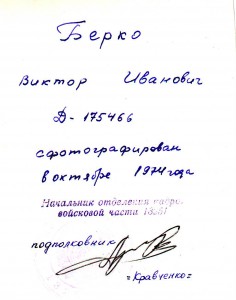 Берко
Виктор Иванович
Д-175466
сфотографирован
в октябре 1974 года
Начальник отделения кадров
войсковой части
подполковник
=Кравченко=